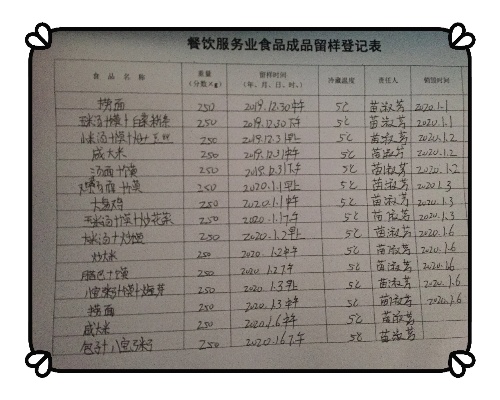 餐饮服务业食品成品留样登记表
食品名称 重量（份数×g） 留样时间（年、月、日、时、） 冷藏温度 责任人 销毁时间
捞面 250 2019.12.30中午 5℃ 苗淑芳 2020.1.1
250 2019.12.30下午 5℃ 苗淑芳 2020.1.1
250 2019.12.31早上 5℃ 苗淑芳 2020.1.2
咸大米 250 2019.12.31中午 5℃ 苗淑芳 2020.1.2
汤面 250 2019.12.31下午 5℃ 苗淑芳 2020.1.2
250 2020.1.1早上 5℃ 苗淑芳 2020.1.3
大盘鸡 250 2020.1.1中午 5℃ 苗淑芳 2020.1.3
玉米汤+馍+炒花菜 250 2020.1.1下午 5℃ 苗淑芳 2020.1.3
250 2020.1.2早上 5℃ 苗淑芳 2020.1.6
炒大米 250 2020.1.2中午 5℃ 苗淑芳 2020.1.6
250 2020.1.2下午 5℃ 苗淑芳 2020.1.6
250 2020.1.3早上 5℃ 苗淑芳 2020.1.6
捞面 250 2020.1.3中午 5℃ 苗淑芳 2020.1.6
咸大米 250 2020.1.6中午 5℃ 苗淑芳
包子+八宝粥 250 2020.1.6下午 5℃ 苗淑芳